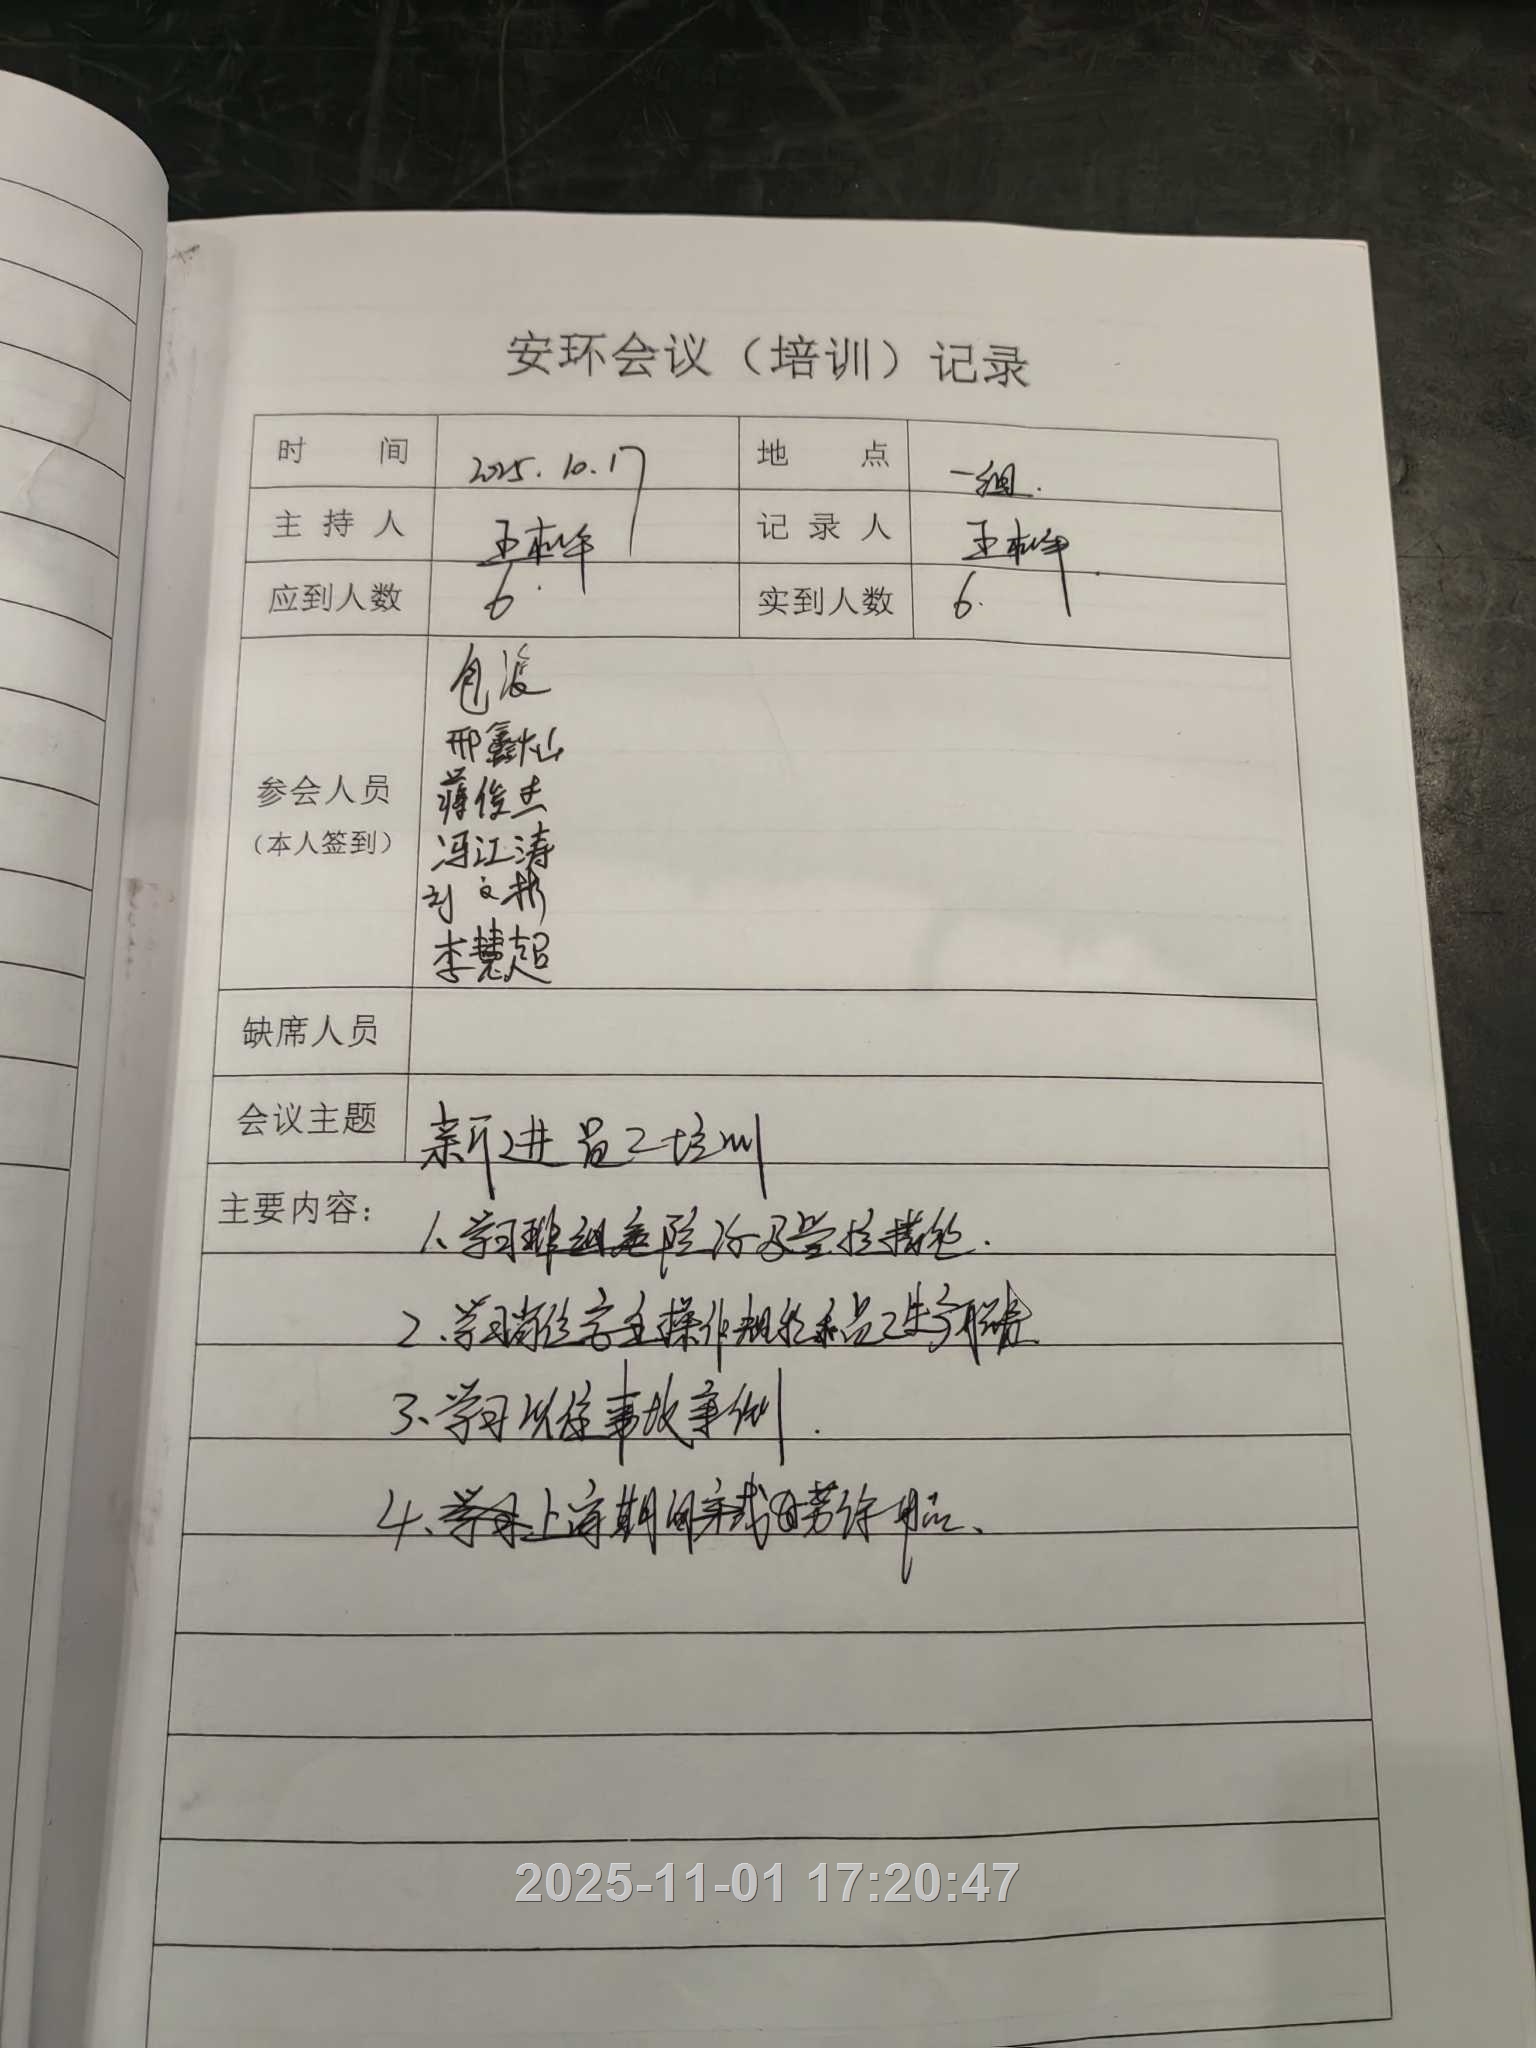 安环会议（培训）记录
时 间 2025.10.17 地 点 一组.
主持人 王 记录人 王
应到人数 6. 实到人数 6.
参会人员
（本人签到）
包波
邢鑫灿
蒋俊杰
冯江涛
刘文彬
李慧超
缺席人员
会议主题 新进员工培训
主要内容：
1、学习班组危险源及管控措施.
2、学习岗位安全操作规程和员工安全职责.
3、学习以往事故案例.
4、上岗期间穿戴好劳保用品、
2025-11-01 17:20:47